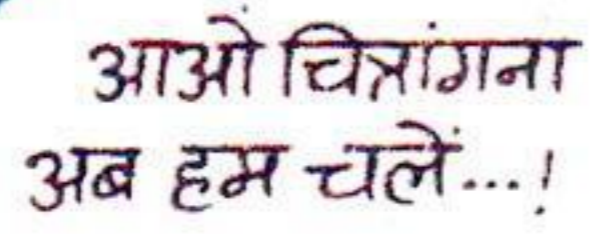 आओ चित्रांगना
अब हम चलें...!